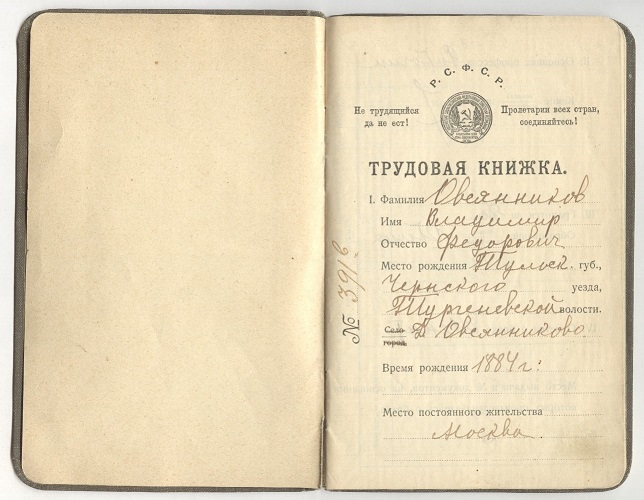 Р. С. Ф. С. Р.
Не трудящийся
да не ест!
Пролетарии всех стран,
соединяйтесь!
ТРУДОВАЯ КНИЖКА.
I. Фамилия Овсянников
Имя Владимир
Отчество Федорович
Место рождения Тульск. губ.,
Чернского уезда,
Тургеневской волости.
Село Д. Овсянниково.
город.
Время рождения 1884 г:
Место постоянного жительства
Москва.
№ 3916